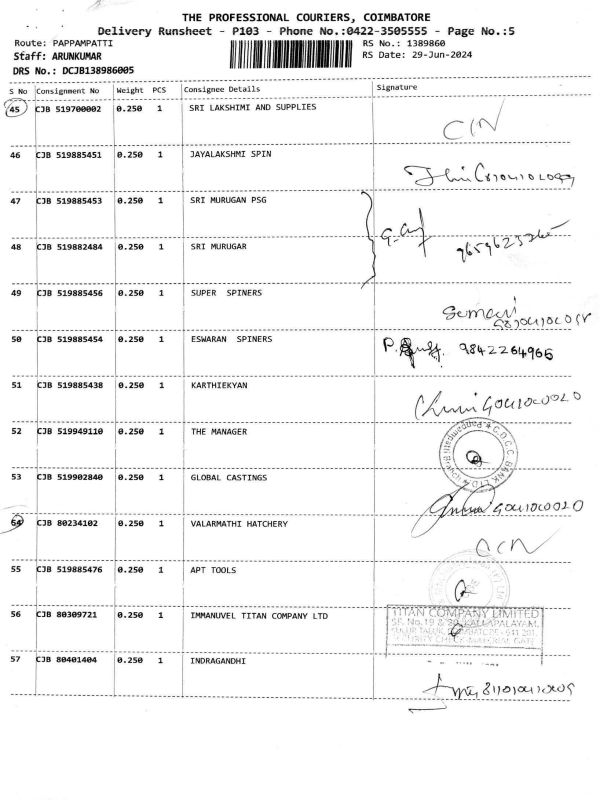 THE PROFESSIONAL COURIERS, COIMBATORE
Delivery Runsheet - P103 - Phone No.:0422-3505555 - Page No.:5
Route: PAPPAMPATTI RS No.: 1389860
Staff: ARUNKUMAR RS Date: 29-Jun-2024
DRS No.: DCJB138986005
S No Consignment No Weight PCS Consignee Details Signature
45 CJB 519700002 0.250 1 SRI LAKSHIMI AND SUPPLIES
46 CJB 519885451 0.250 1 JAYALAKSHMI SPIN
47 CJB 519885453 0.250 1 SRI MURUGAN PSG
48 CJB 519882484 0.250 1 SRI MURUGAR
49 CJB 519885456 0.250 1 SUPER SPINERS
50 CJB 519885454 0.250 1 ESWARAN SPINERS 9842264966
51 CJB 519885438 0.250 1 KARTHIEKYAN
52 CJB 519949110 0.250 1 THE MANAGER
53 CJB 519902840 0.250 1 GLOBAL CASTINGS
54 CJB 80234102 0.250 1 VALARMATHI HATCHERY
55 CJB 519885476 0.250 1 APT TOOLS
56 CJB 80309721 0.250 1 IMMANUVEL TITAN COMPANY LTD
TITAN COMPANY LIMITED
57 CJB 80401404 0.250 1 INDRAGANDHI